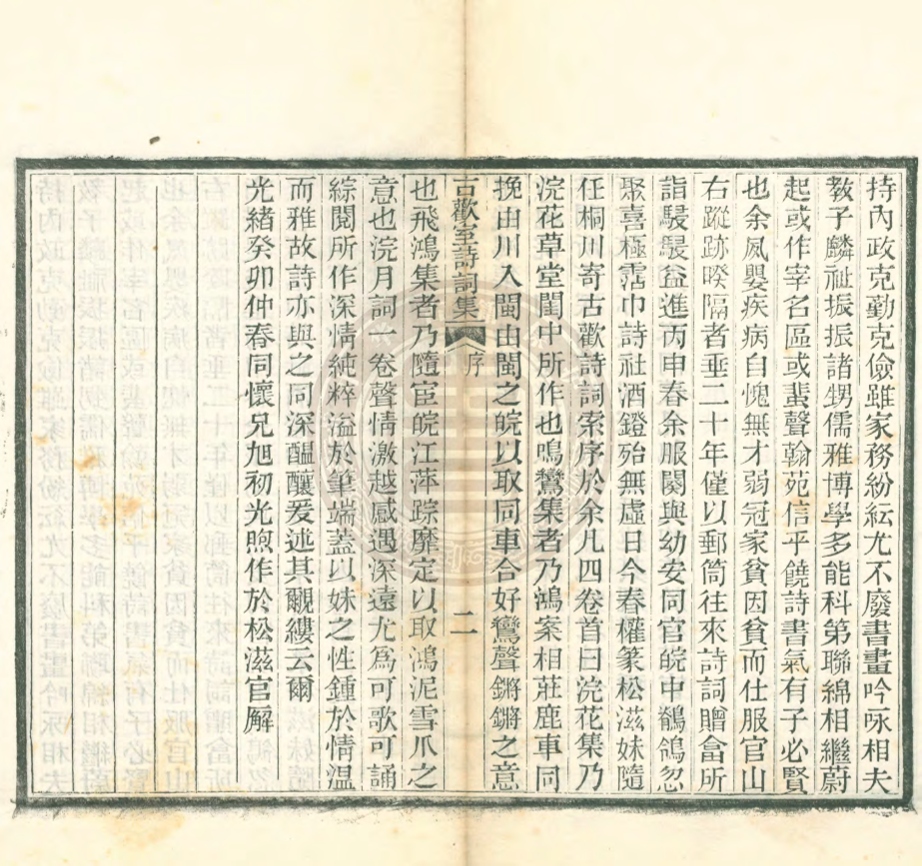 持內政克勤克儉雖家務紛紜尤不廢書畫吟咏相夫
敎子麟祉振振諸甥儒雅博學多能科第聯綿相繼蔚
起或作宰名區或蜚聲翰苑信乎饒詩書氣有子必賢
也余夙嬰疾病自愧無才弱冠家貧因貧而仕服官山
右蹤跡暌隔者垂二十年僅以郵筒往來詩詞贈畣所
詣駸駸益進丙申春余服闋與幼安同官皖中鶺鴒忽
聚喜極霑巾詩社酒鐙殆無虛日今春權篆松滋妹隨
任桐川寄古歡詩詞索序於余凡四卷首曰浣花集乃
浣花草堂閨中所作也鳴鸞集者乃鴻案相莊鹿車同
挽由川入閩由閩之皖以取同車合好鸞聲鏘鏘之意
古歡室詩詞集 序 二
也飛鴻集者乃隨宦皖江萍踪靡定以取鴻泥雪爪之
意也浣月詞一卷聲情激越感遇深遠尤爲可歌可誦
綜閱所作深情純粹溢於筆端蓋以妹之性鍾於情溫
而雅故詩亦與之同深醞釀爰述其覼縷云爾
光緒癸卯仲春同懷兄旭初光煦作於松滋官廨